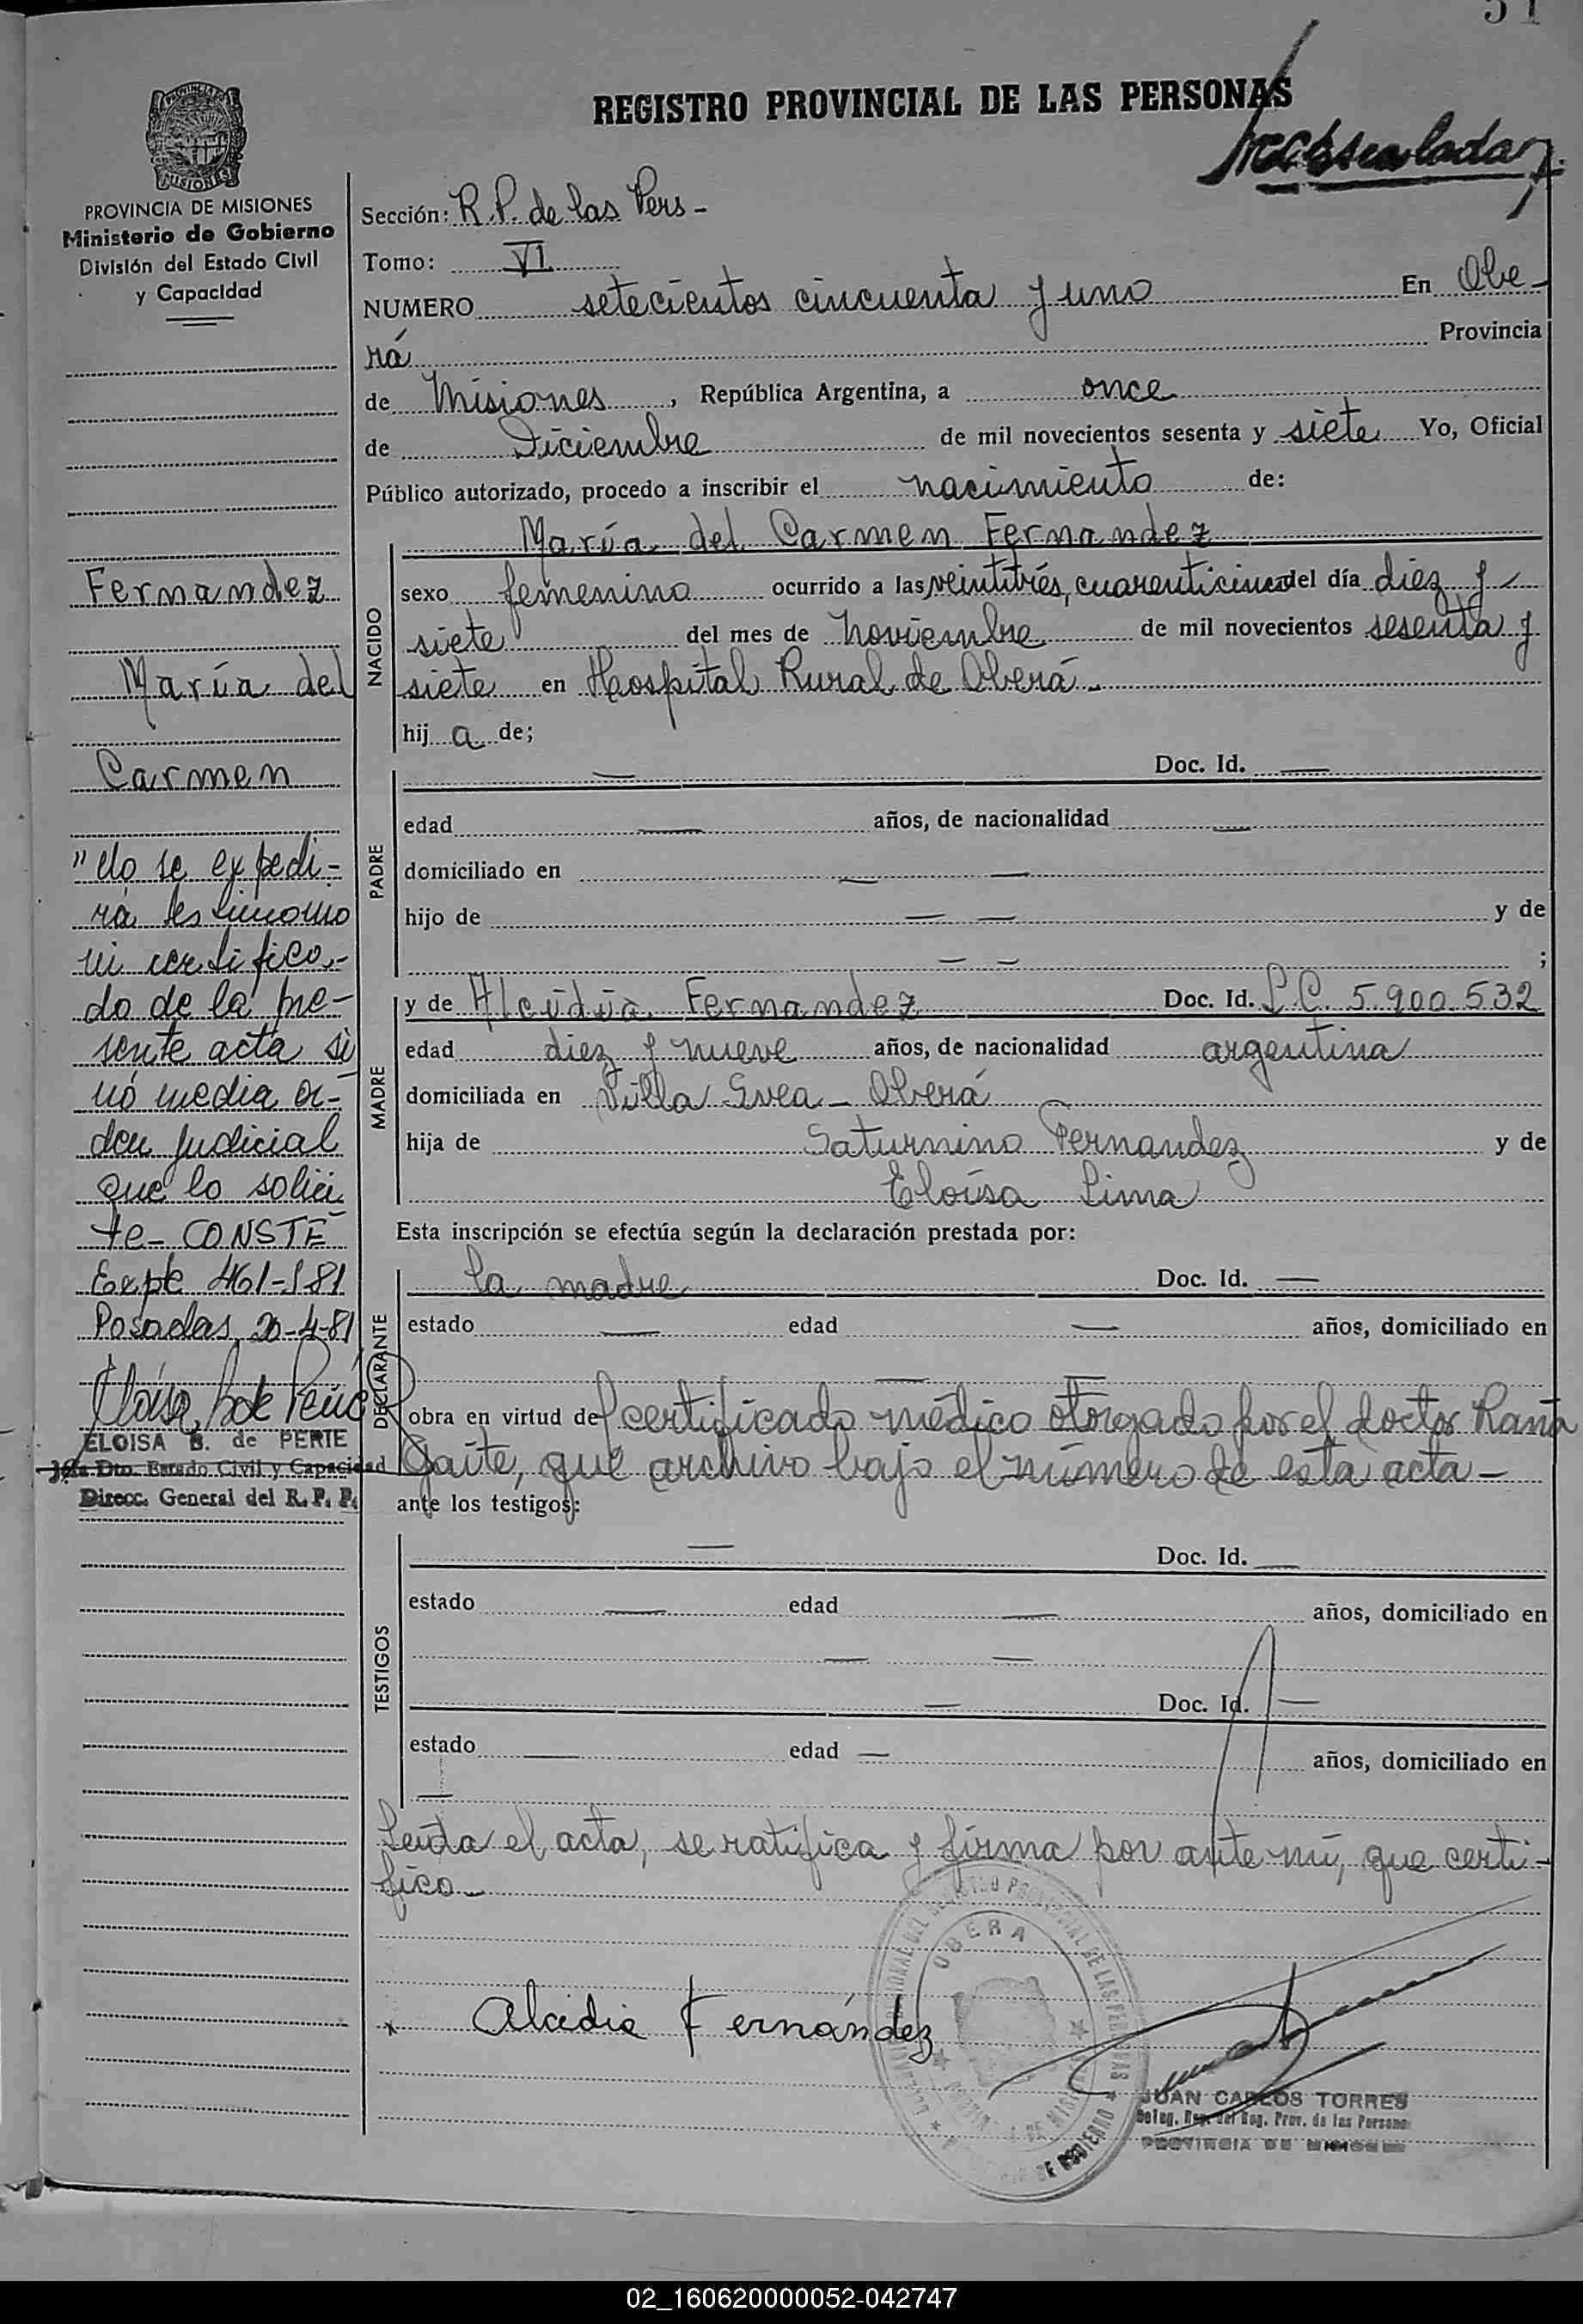 51
REGISTRO PROVINCIAL DE LAS PERSONAS
PROVINCIA DE MISIONES
Ministerio de Gobierno
División del Estado Civil
y Capacidad
Fernandez
María del
Carmen
"No se expedi-
rá testimonio
ni certifica-
do de la pre-
sente acta si
nó media or-
den judicial
que lo solici
te- CONSTE
Expte 461-S81
Posadas, 20-4-81
ELOISA B. de PERIE
Jefa Dto. Estado Civil y Capacidad
Direcc. General del R. P. P.
Sección: R.P. de las Pers-
Tomo: VI
NUMERO setecientos cincuenta y uno En Obe-
rá Provincia
de Misiones, República Argentina, a once
de Diciembre de mil novecientos sesenta y siete Yo, Oficial
Público autorizado, procedo a inscribir el nacimiento de:
NACIDO
María del Carmen Fernandez
sexo femenino ocurrido a las veintitrés, cuarenticinco del día diez y
siete del mes de Noviembre de mil novecientos sesenta y
siete en Hospital Rural de Oberá-
hij a de;
PADRE
— Doc. Id. —
edad — años, de nacionalidad —
domiciliado en — —
hijo de — — y de
— — ;
MADRE
y de Alcidia Fernandez Doc. Id. L.C. 5.900.532
edad diez y nueve años, de nacionalidad argentina
domiciliada en Villa Svea - Oberá
hija de Saturnino Fernandez y de
Eloísa Lima
Esta inscripción se efectúa según la declaración prestada por:
DECLARANTE
la madre Doc. Id. —
estado — edad — años, domiciliado en
— —
obra en virtud del certificado médico otorgado por el doctor Ramón
Gaite, que archivo bajo el número de esta acta-
ante los testigos:
TESTIGOS
— Doc. Id. —
estado — edad — años, domiciliado en
— —
— Doc. Id. —
estado — edad — años, domiciliado en
—
Leída el acta, se ratifica y firma por ante mí, que certi-
fico-
OBERA
x Alcidia Fernández
JUAN CARLOS TORRES
Prov. de las Personas
PROVINCIA DE MISIONES
02_160620000052-042747